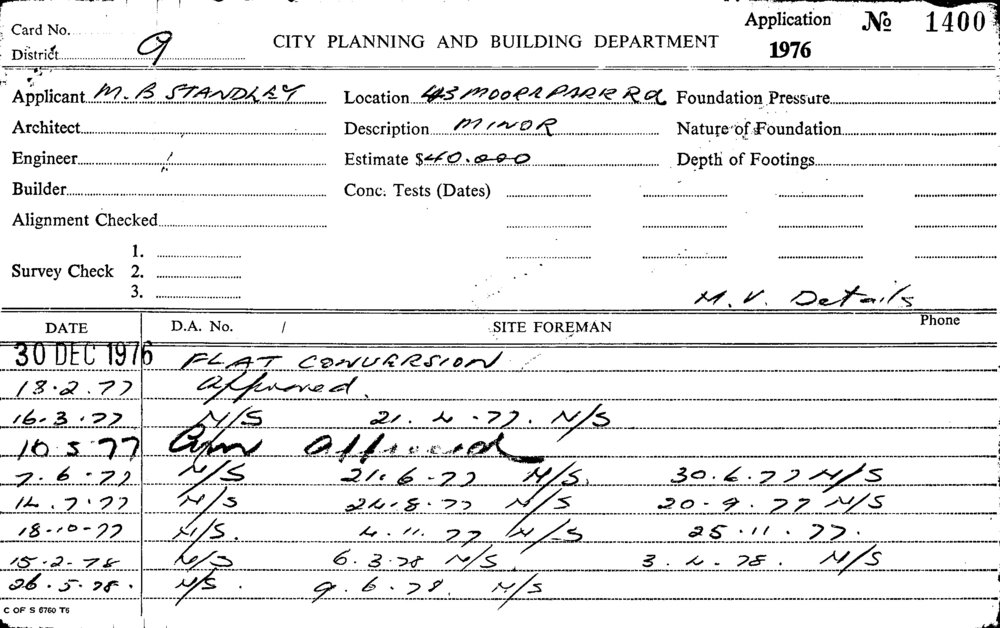 Card No. CITY PLANNING AND BUILDING DEPARTMENT Application № 1400
District 9 1976
Applicant M. B STANDLEY Location 43 MOORE PARK Rd Foundation Pressure
Architect Description MINOR Nature of Foundation
Engineer Estimate $40.000 Depth of Footings
Builder Conc. Tests (Dates)
Alignment Checked
1.
Survey Check 2.
3.
M.V. Details
DATE D.A. No. / SITE FOREMAN Phone
30 DEC 1976 FLAT CONVERSION
18.2.77 Approved.
16.3.77 N/S 21.4.77. N/S
10 5 77 Am Approved
7.6.77 N/S 21.6.77 N/S. 30.6.77 N/S
14.7.77 N/S 24.8.77 N/S 20.9.77 N/S
18-10-77 N/S. 4.11.77 N/S 25.11.77.
15.2.78 N/S 6.3.78 N/S. 3.4.78. N/S
26.5.78. N/S. 9.6.78. N/S
C OF S 6760 T6